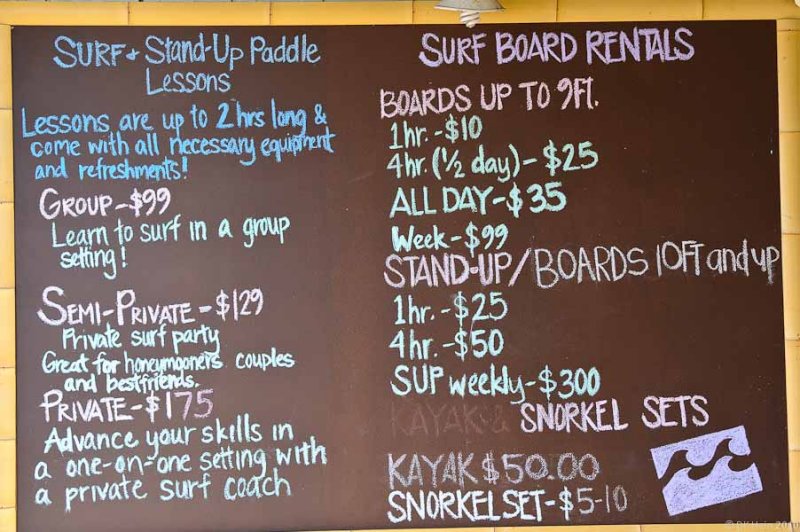 SURF + Stand-Up Paddle
Lessons
Lessons are up to 2 hrs long &
come with all necessary equipment
and refreshments!
GROUP - $99
Learn to surf in a group
setting!
SEMI-PRIVATE - $129
Private surf party
Great for honeymooners couples
and bestfriends.
PRIVATE - $175
Advance your skills in
a one-on-one setting with
a private surf coach
SURF BOARD RENTALS
BOARDS UP TO 9FT.
1hr. - $10
4hr. (1/2 day) - $25
ALL DAY - $35
Week - $99
STAND-UP/BOARDS 10FT and up
1hr. - $25
4hr. - $50
SUP weekly - $300
KAYAK & SNORKEL SETS
KAYAK $50.00
SNORKEL SET - $5-10